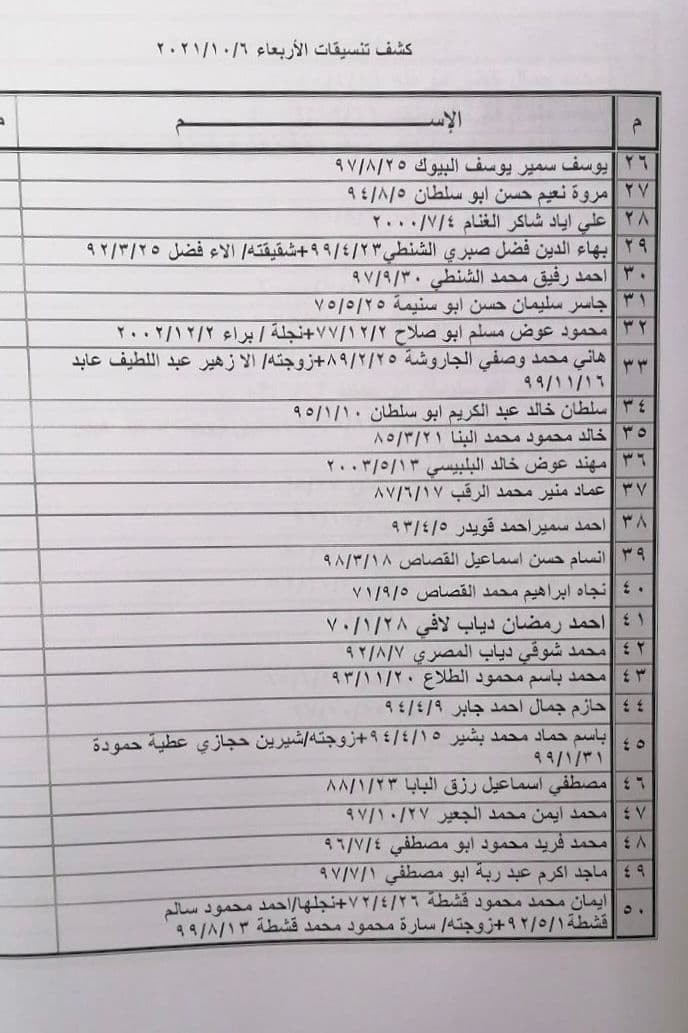 كشف تنسيقات الأربعاء ٢٠٢١/١٠/٦
م الإســـــــــــم
٢٦ يوسف سمير يوسف البيوك ٩٧/٨/٢٥
٢٧ مروة نعيم حسن ابو سلطان ٩٤/٨/٥
٢٨ علي اياد شاكر الغنام ٢٠٠٠/٧/٤
٢٩ بهاء الدين فضل صبري الشنطي٩٩/٤/٢٣+شقيقته/ الاء فضل ٩٢/٣/٢٥
٣٠ احمد رفيق محمد الشنطي ٩٧/٩/٣٠
٣١ جاسر سليمان حسن ابو سنيمة ٧٥/٥/٢٥
٣٢ محمود عوض مسلم ابو صلاح ٧٧/١٢/٢+نجلة / براء ٢٠٠٢/١٢/٢
٣٣ هاني محمد وصفي الجاروشة ٨٩/٢/٢٥+زوجته/ الا زهير عبد اللطيف عابد
٩٩/١١/١٦
٣٤ سلطان خالد عبد الكريم ابو سلطان ٩٥/١/١٠
٣٥ خالد محمود محمد البنا ٨٥/٣/٢١
٣٦ مهند عوض خالد البلبيسي ٢٠٠٣/٥/١٣
٣٧ عماد منير محمد الرقب ٨٧/٦/١٧
٣٨ احمد سميراحمد قويدر ٩٣/٤/٥
٣٩ انسام حسن اسماعيل القصاص ٩٨/٣/١٨
٤٠ نجاه ابراهيم محمد القصاص ٧١/٩/٥
٤١ احمد رمضان دياب لافي ٧٠/١/٢٨
٤٢ محمد شوقي دياب المصري ٩٢/٨/٧
٤٣ محمد باسم محمود الطلاع ٩٣/١١/٢٠
٤٤ حازم جمال احمد جابر ٩٤/٤/٩
٤٥ باسم حماد محمد بشير ٩٤/٤/١٥+زوجته/شيرين حجازي عطية حمودة
٩٩/١/٣١
٤٦ مصطفي اسماعيل رزق البابا ٨٨/١/٢٣
٤٧ محمد ايمن محمد الجعير ٩٧/١٠/٢٧
٤٨ محمد فريد محمود ابو مصطفي ٩٦/٧/٤
٤٩ ماجد اكرم عبد ربة ابو مصطفي ٩٧/٧/١
٥٠ ايمان محمد محمود قشطة ٧٢/٤/٢٦+نجلها/احمد محمود سالم
قشطة٩٢/٥/١+زوجته/ سارة محمود محمد قشطة ٩٩/٨/١٣